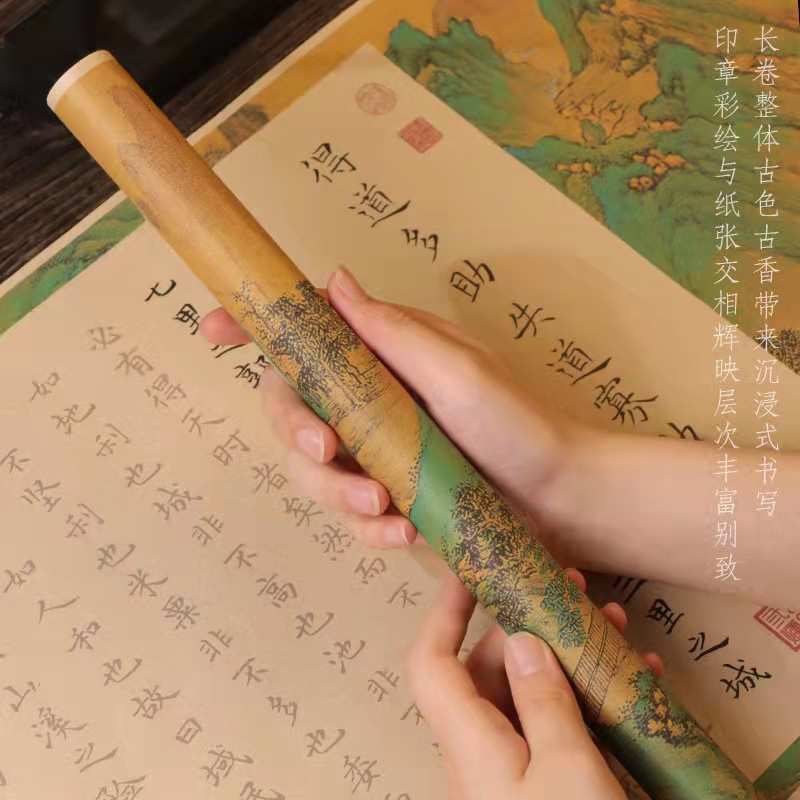 长卷整体古色古香带来沉浸式书写
印章彩绘与纸张交相辉映层次丰富别致
得道多助失道寡
三里之城
七里之郭
必有得天时者矣然而不
如地利也城非不高也池非
不坚利也米粟非不多也委
如人和也故曰域民
山溪之险